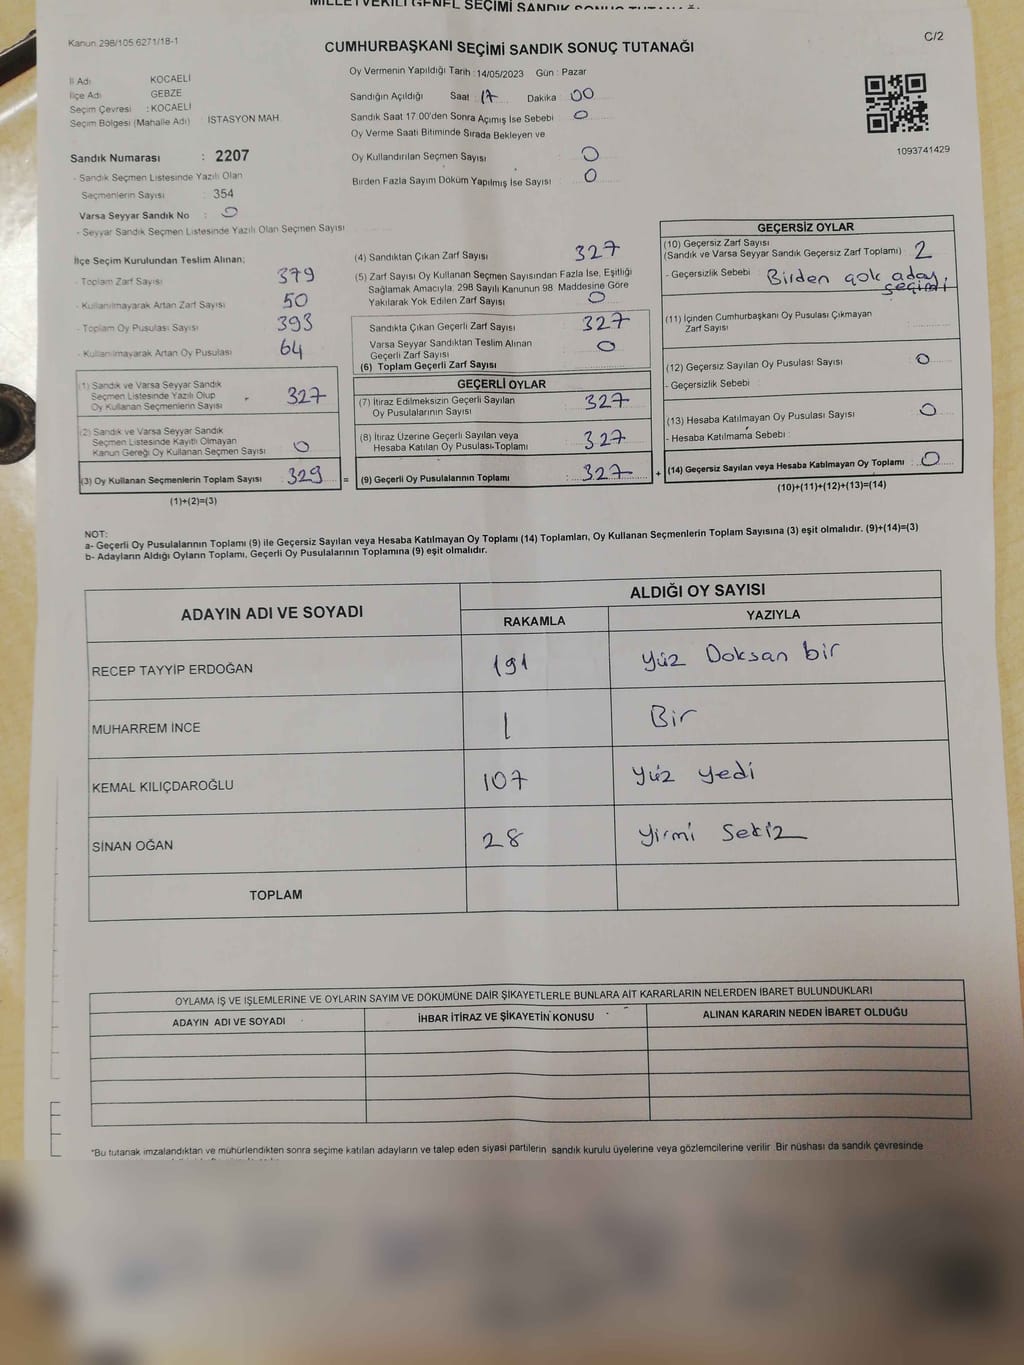 Kanun.298/105.6271/18-1
C/2
CUMHURBAŞKANI SEÇİMİ SANDIK SONUÇ TUTANAĞI
İl Adı KOCAELİ
İlçe Adı GEBZE
Seçim Çevresi : KOCAELİ
Seçim Bölgesi (Mahalle Adı) : İSTASYON MAH.
Sandık Numarası : 2207
- Sandık Seçmen Listesinde Yazılı Olan
Seçmenlerin Sayısı : 354
Varsa Seyyar Sandık No : 0
- Seyyar Sandık Seçmen Listesinde Yazılı Olan Seçmen Sayısı
Oy Vermenin Yapıldığı Tarih : 14/05/2023 Gün : Pazar
Sandığın Açıldığı Saat : 17 Dakika : 00
Sandık Saat 17:00'den Sonra Açımış İse Sebebi : 0
Oy Verme Saati Bitiminde Sırada Bekleyen ve
Oy Kullandırılan Seçmen Sayısı 0
Birden Fazla Sayım Döküm Yapılmış İse Sayısı : 0
1093741429
İlçe Seçim Kurulundan Teslim Alınan;
- Toplam Zarf Sayısı : 379
- Kullanılmayarak Artan Zarf Sayısı : 50
- Toplam Oy Pusulası Sayısı : 393
- Kullanılmayarak Artan Oy Pusulası : 64
(1) Sandık ve Varsa Seyyar Sandık
Seçmen Listesinde Yazılı Olup
Oy Kullanan Seçmenlerin Sayısı : 327
(2) Sandık ve Varsa Seyyar Sandık
Seçmen Listesinde Kayıtlı Olmayan
Kanun Gereği Oy Kullanan Seçmen Sayısı : 0
(3) Oy Kullanan Seçmenlerin Toplam Sayısı : 329 =
(1)+(2)=(3)
(4) Sandıktan Çıkan Zarf Sayısı : 327
(5) Zarf Sayısı Oy Kullanan Seçmen Sayısından Fazla İse, Eşitliği
Sağlamak Amacıyla, 298 Sayılı Kanunun 98. Maddesine Göre
Yakılarak Yok Edilen Zarf Sayısı : 0
Sandıkta Çıkan Geçerli Zarf Sayısı : 327
Varsa Seyyar Sandıktan Teslim Alınan
Geçerli Zarf Sayısı : 0
(6) Toplam Geçerli Zarf Sayısı
GEÇERLİ OYLAR
(7) İtiraz Edilmeksizin Geçerli Sayılan
Oy Pusulalarının Sayısı : 327
(8) İtiraz Üzerine Geçerli Sayılan veya
Hesaba Katılan Oy Pusulası Toplamı : 327
(9) Geçerli Oy Pusulalarının Toplamı : 327 +
GEÇERSİZ OYLAR
(10) Geçersiz Zarf Sayısı
(Sandık ve Varsa Seyyar Sandık Geçersiz Zarf Toplamı) : 2
- Geçersizlik Sebebi : Birden çok aday
seçimi
(11) İçinden Cumhurbaşkanı Oy Pusulası Çıkmayan
Zarf Sayısı
(12) Geçersiz Sayılan Oy Pusulası Sayısı : 0
- Geçersizlik Sebebi :
(13) Hesaba Katılmayan Oy Pusulası Sayısı : 0
- Hesaba Katılmama Sebebi :
(14) Geçersiz Sayılan veya Hesaba Katılmayan Oy Toplamı : 0
(10)+(11)+(12)+(13)=(14)
NOT:
a- Geçerli Oy Pusulalarının Toplamı (9) ile Geçersiz Sayılan veya Hesaba Katılmayan Oy Toplamı (14) Toplamları, Oy Kullanan Seçmenlerin Toplam Sayısına (3) eşit olmalıdır. (9)+(14)=(3)
b- Adayların Aldığı Oyların Toplamı, Geçerli Oy Pusulalarının Toplamına (9) eşit olmalıdır.
ADAYIN ADI VE SOYADI
ALDIĞI OY SAYISI
RAKAMLA YAZIYLA
RECEP TAYYİP ERDOĞAN 191 Yüz Doksan bir
MUHARREM İNCE 1 Bir
KEMAL KILIÇDAROĞLU 107 Yüz yedi
SİNAN OĞAN 28 Yirmi Sekiz
TOPLAM
OYLAMA İŞ VE İŞLEMLERİNE VE OYLARIN SAYIM VE DÖKÜMÜNE DAİR ŞİKAYETLERLE BUNLARA AİT KARARLARIN NELERDEN İBARET BULUNDUKLARI
ADAYIN ADI VE SOYADI İHBAR İTİRAZ VE ŞİKAYETİN KONUSU ALINAN KARARIN NEDEN İBARET OLDUĞU
*Bu tutanak imzalandıktan ve mühürlendikten sonra seçime katılan adayların ve talep eden siyasi partilerin sandık kurulu üyelerine veya gözlemcilerine verilir. Bir nüshası da sandık çevresinde